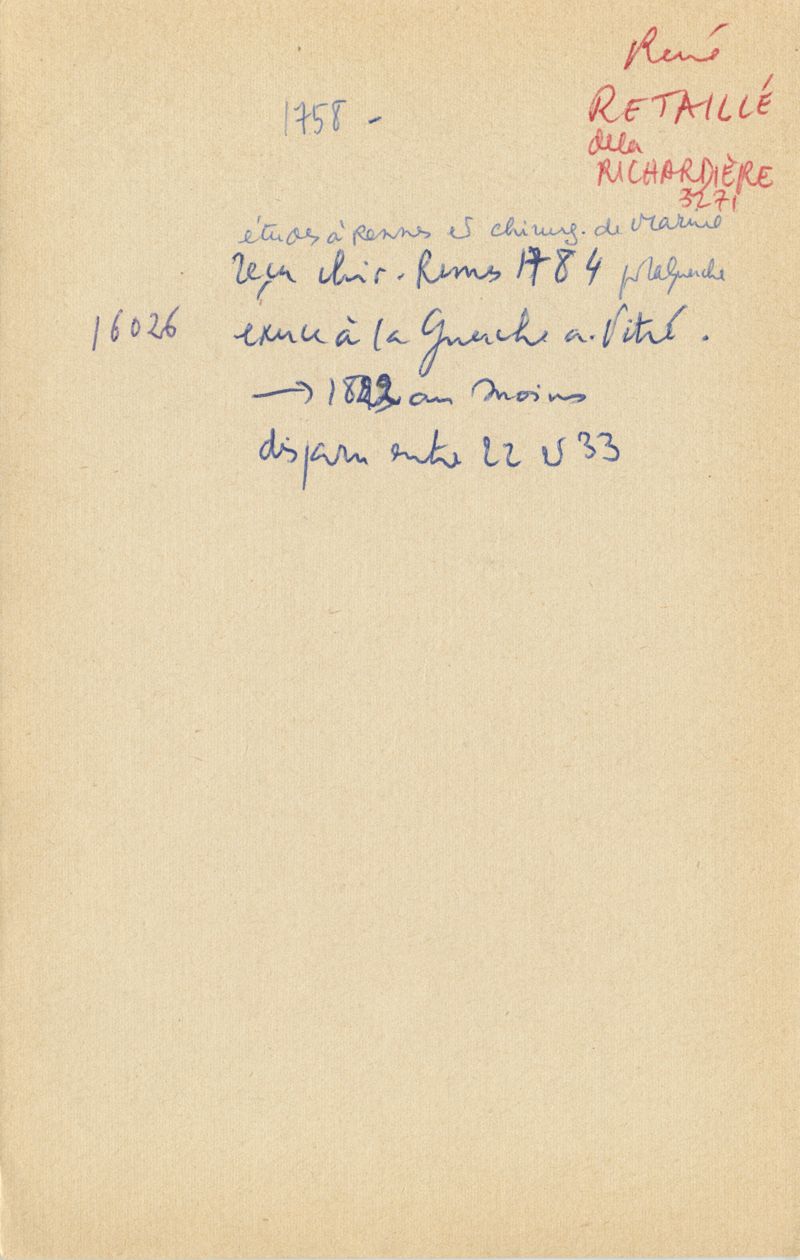 René
RETAILLÉ
de la
RICHARDIÈRE
3271
1758 -
études à Rennes et chirurg. de Marine
reçu chir. Rennes 1784 pr la Guerche
16026 exerce à la Guerche a. Vitré.
→ 1822 au moins
disparu entre 22 et 33